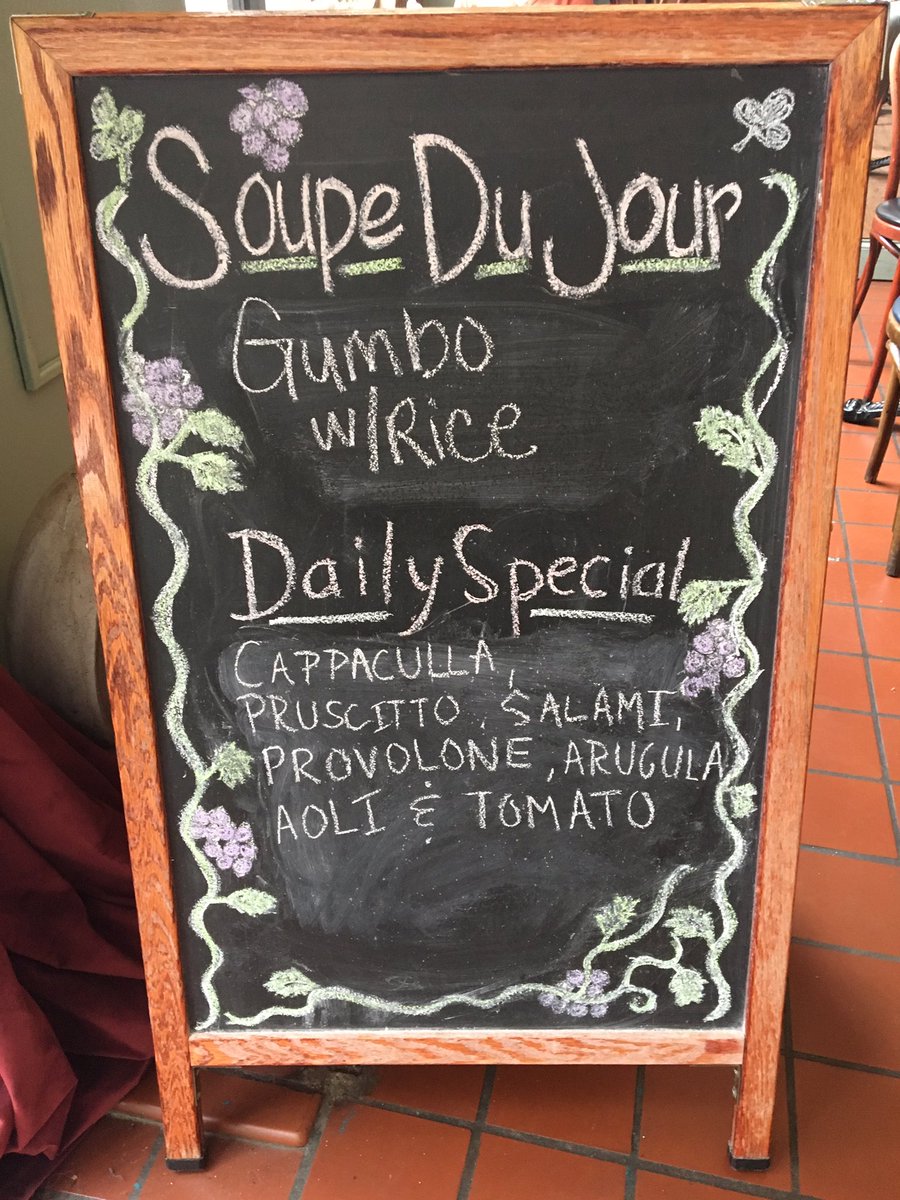 Soupe Du Jour
Gumbo
w/Rice
Daily Special
CAPPACULLA,
PRUSCITTO, SALAMI,
PROVOLONE, ARUGULA
AOLI & TOMATO